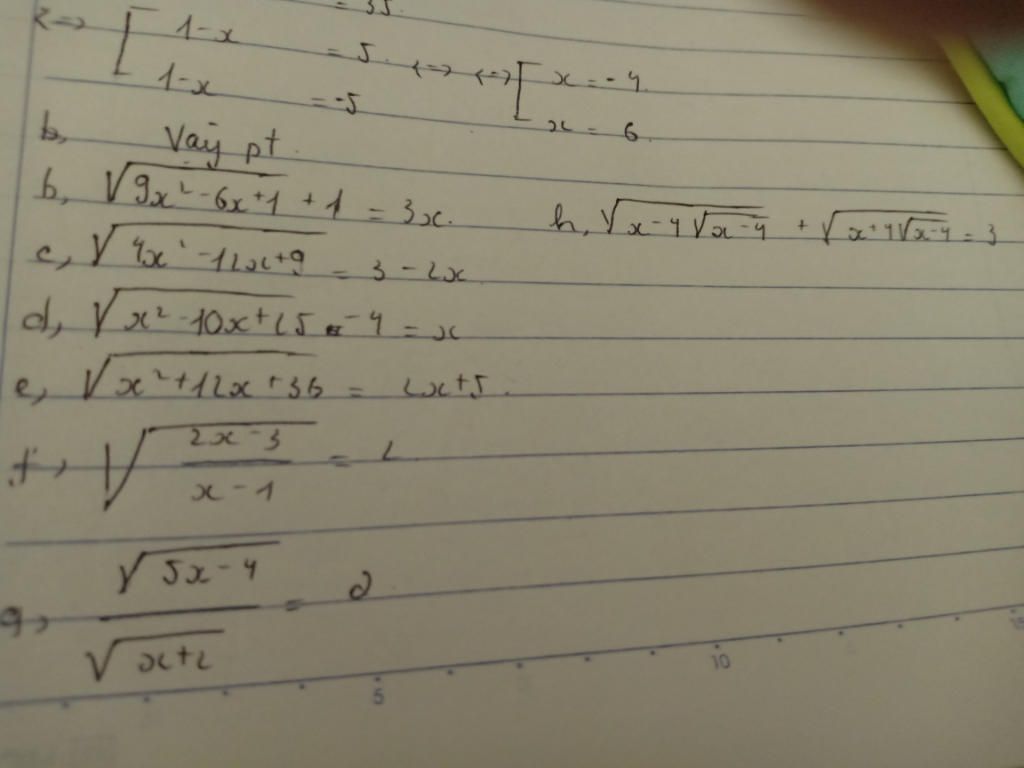 = 35
<=> [ 1-x = 5 <=> <=> [ x = -4
1-x = -5 x = 6
b, Vậy pt
b, √(9x²-6x+1) + 1 = 3x. h, √(x-4√(x-4)) + √(x+4√(x-4)) = 3
c, √(4x²-12x+9) = 3-2x
d, √(x²-10x+25) - 4 = x
e, √(x²+12x+36) = 2x+5.
f, √((2x-3)/(x-1)) = 2
g, √(5x-4)/√(x+2) = 2
5 10 15